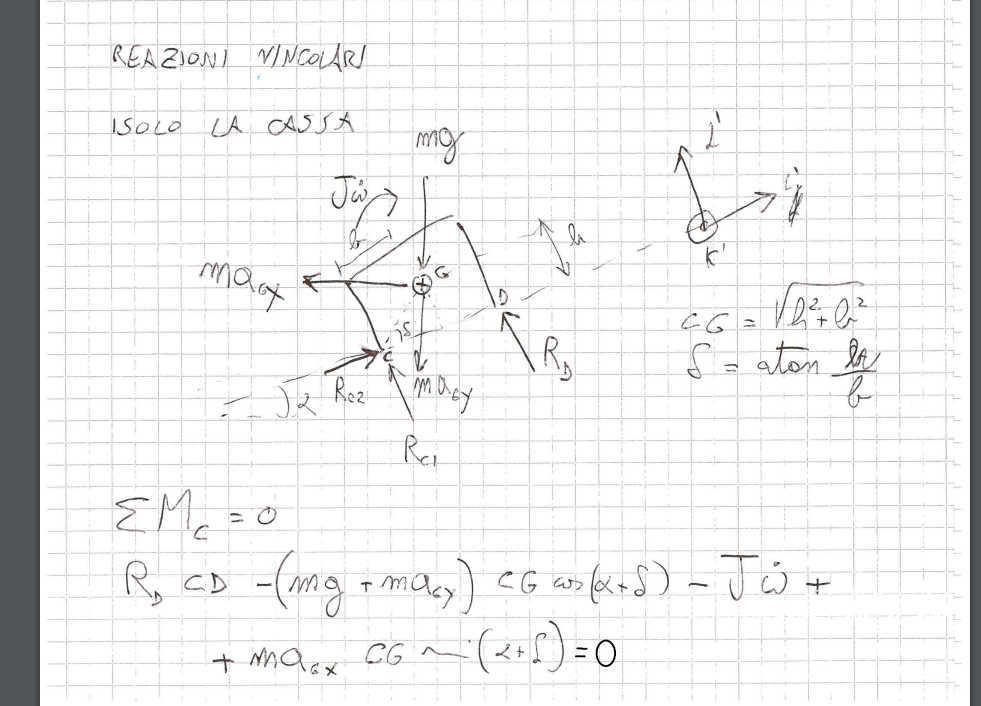 REAZIONI VINCOLARI
ISOLO LA CASSA
mg
Jω̇
b
h
j'
i'
k'
ma_GX
G
D
δ
C
α
R_C2
ma_GY
R_D
R_C1
CG = √(h² + b²)
δ = atan h/b
ΣM_C = 0
R_D CD - (mg + ma_GY) CG cos(α+δ) - Jω̇ +
+ ma_GX CG sin(α+δ) = 0